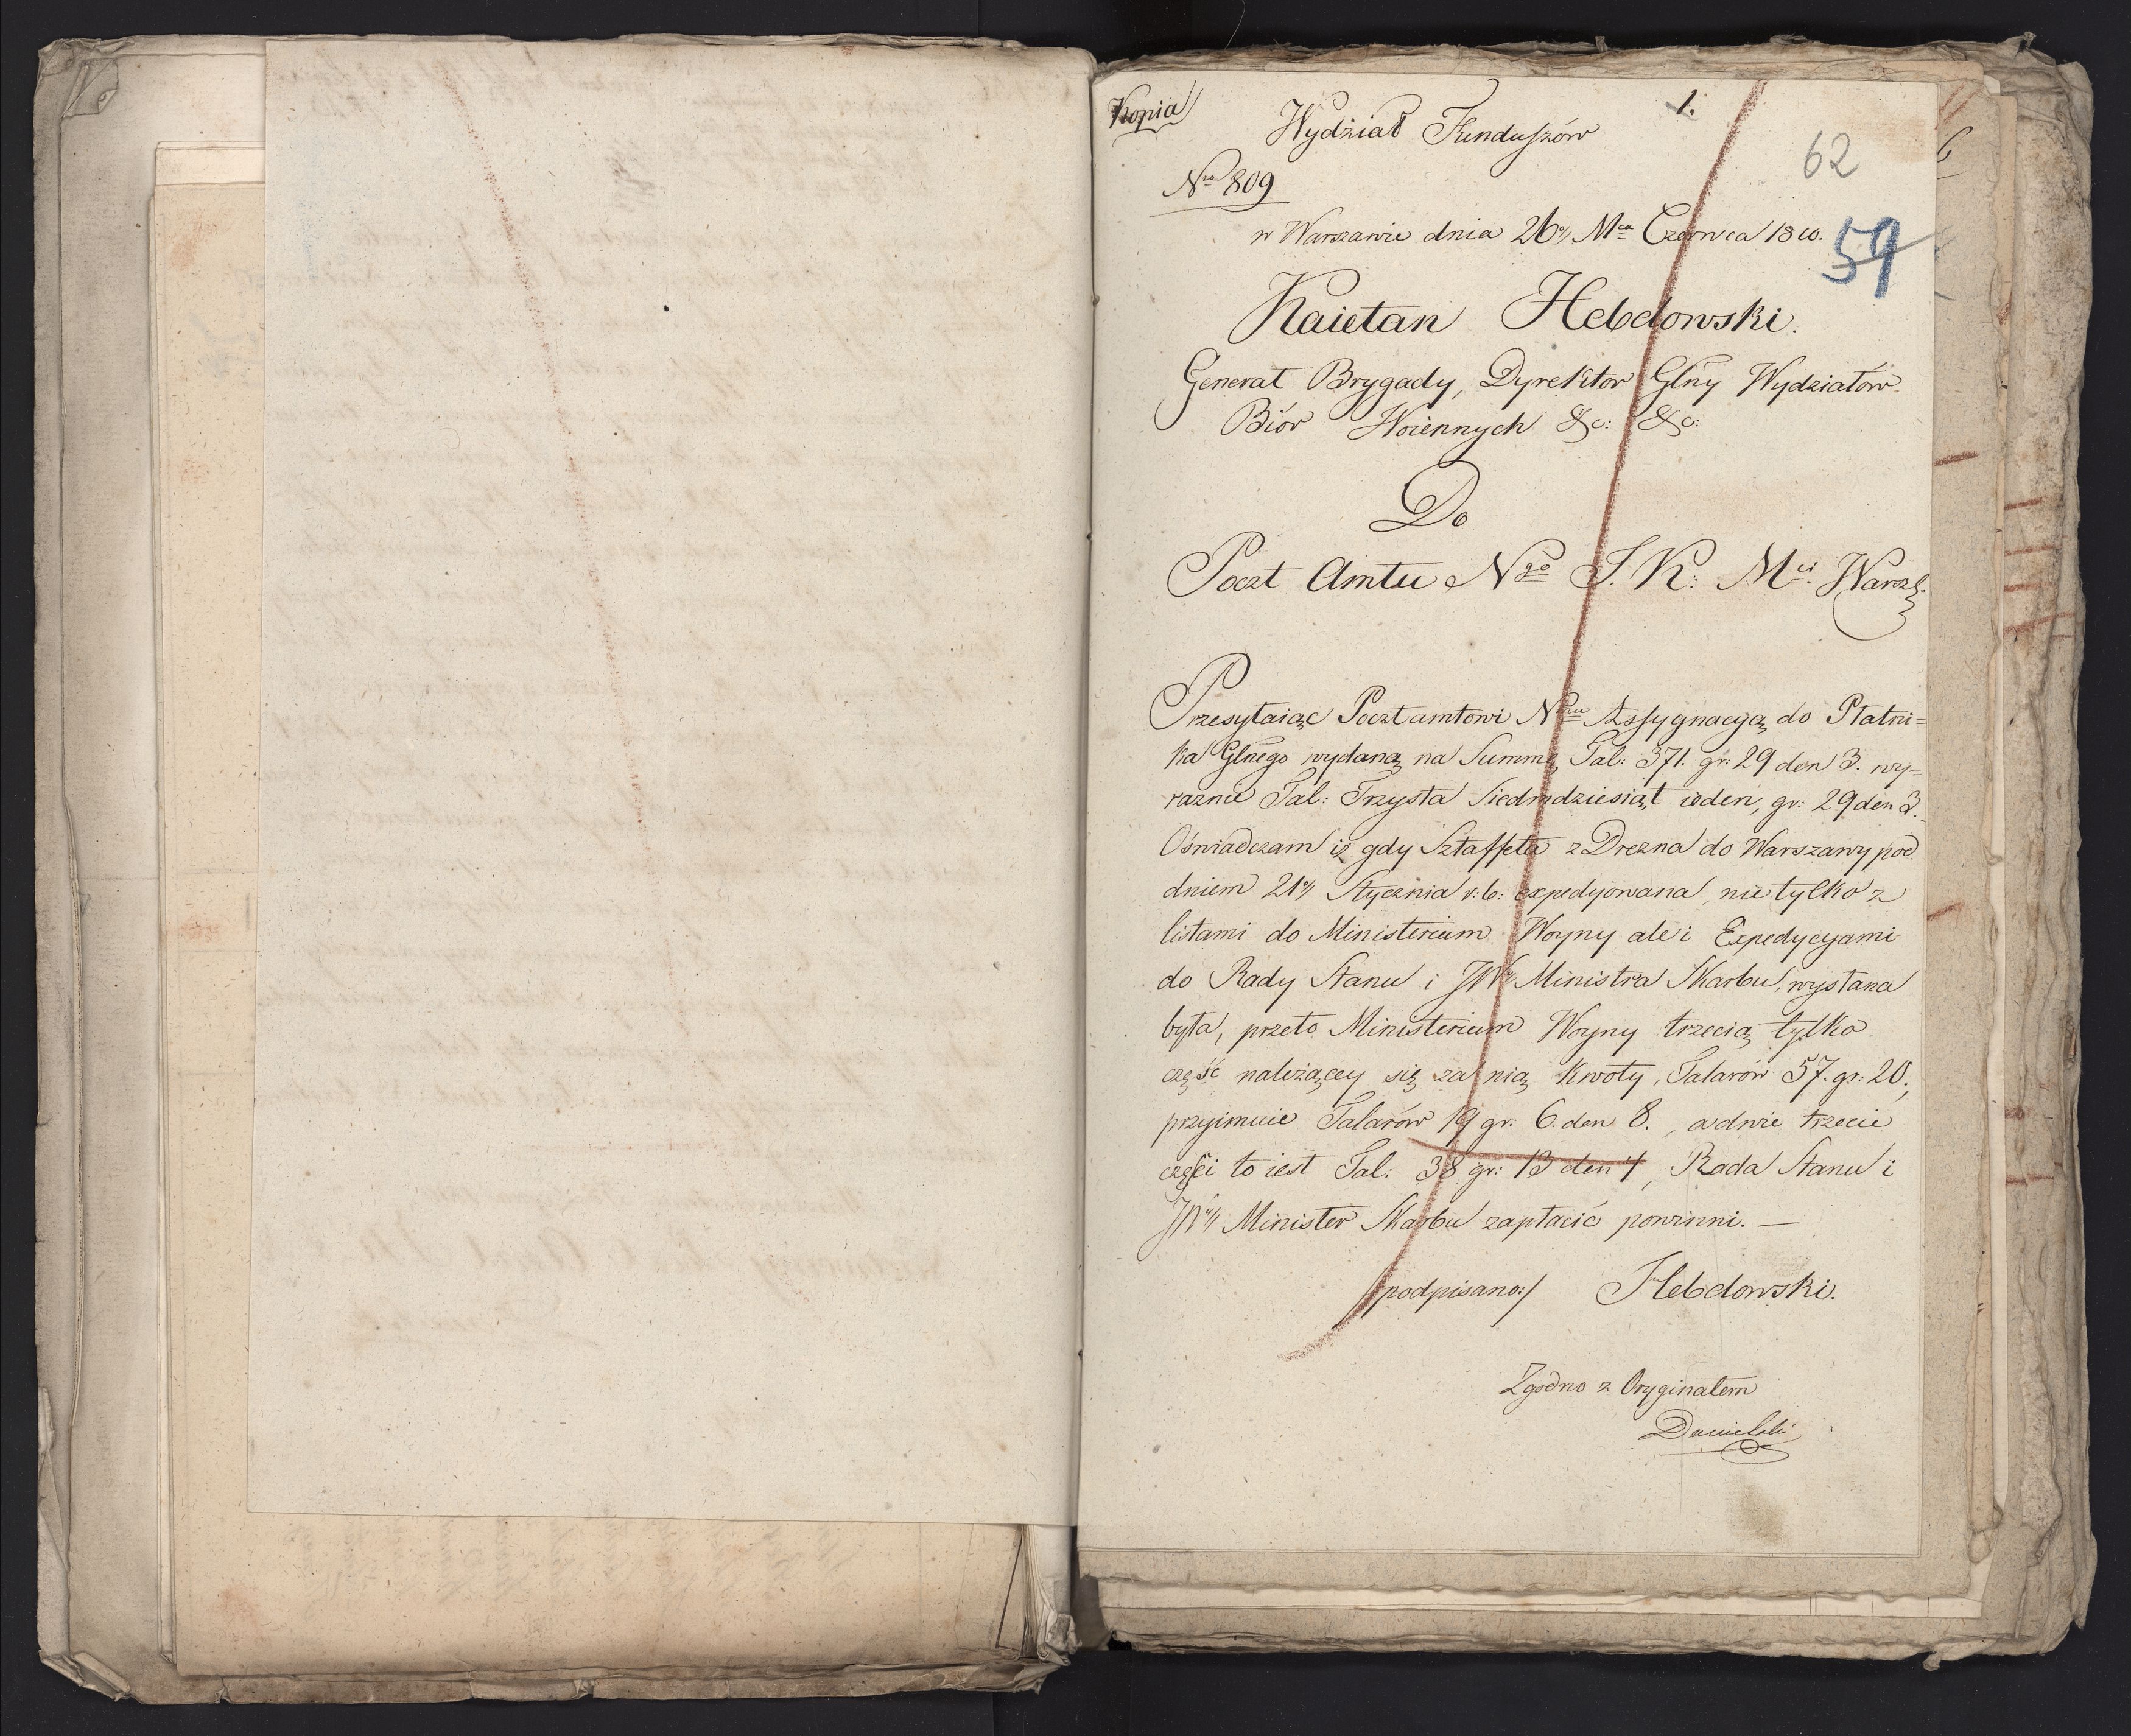 Kopia
1.
Wydział Funduszów
62
Nro 809
w Warszawie dnia 26go Mca Czerwca 1810.
59
Kaietan Hebdowski.
Generał Brygady, Dyrektor Glny Wydziałów
Biór Woiennych &c: &c:
Do
Poczt Amtu Ngo J. K: Mci Warsz:
Przesyłaiąc Pocztamtowi Nmu Assygnacyą do Płatni=
ka Glnego wydaną na Summę Tal: 371. gr: 29 den 3. wy=
raźnie Tal: Trzysta Siedmdziesiąt ieden, gr: 29 den 3.
Oświadczam iż gdy Sztaffeta z Drezna do Warszawy pod
dniem 21go Stycznia r: b: expedyjowana, nie tylko z
listami do Ministerium Woyny ale i Expedycyami
do Rady Stanu i JWo Ministra Skarbu, wysłana
była, przeto Ministerium Woyny trzecią tylko
część należącey się za nią Kwoty, Talarów 57. gr: 20.,
przyimuie Talarów 19 gr: 6. den 8., a dwie trzecie
części to iest Tal: 38 gr: 13 den 4, Rada Stanu i
JWy Minister Skarbu zapłacić powinni. —
/podpisano:/ Hebdowski.
Zgodno z Oryginałem
Danielski